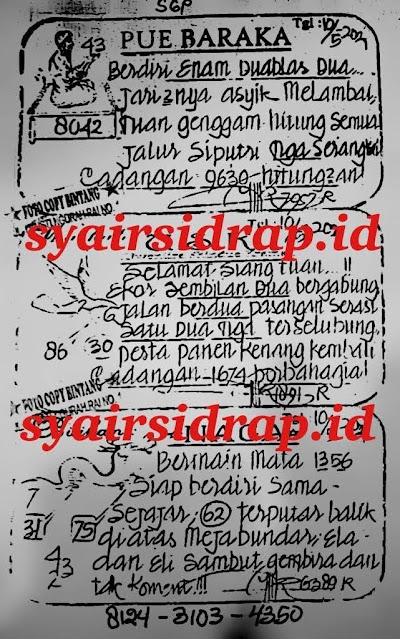 SGP
Tgl : 10/5 202
PUE BARAKA
43
Berdiri Enam Duablas Dua...
Jarinya asyik Melambai,
8042
Tuan genggam hitung semua
Jalur Siputri Tiga Serangkai
Cadangan 9630 hitungan
795 R
FOTO COPY BINTANG
syairsidrap.id
Selamat siang tuan...!!
Ekor Sembilan Dua bergabung
Jalan berdua pasangan serasi
Satu Dua Tiga terselubung,
86 30
pesta panen kenang kembali
Cadangan 1674 berbahagia!
FOTO COPY BINTANG
syairsidrap.id
Bermain Mata 1356
7
Siap berdiri sama-
31 75
Sejajar, 62 terputar balik
di atas Meja bundar, Ela
43
dan Eli Sambut gembira dan
tak Koment!!!
6389 R
8124 - 3103 - 4350